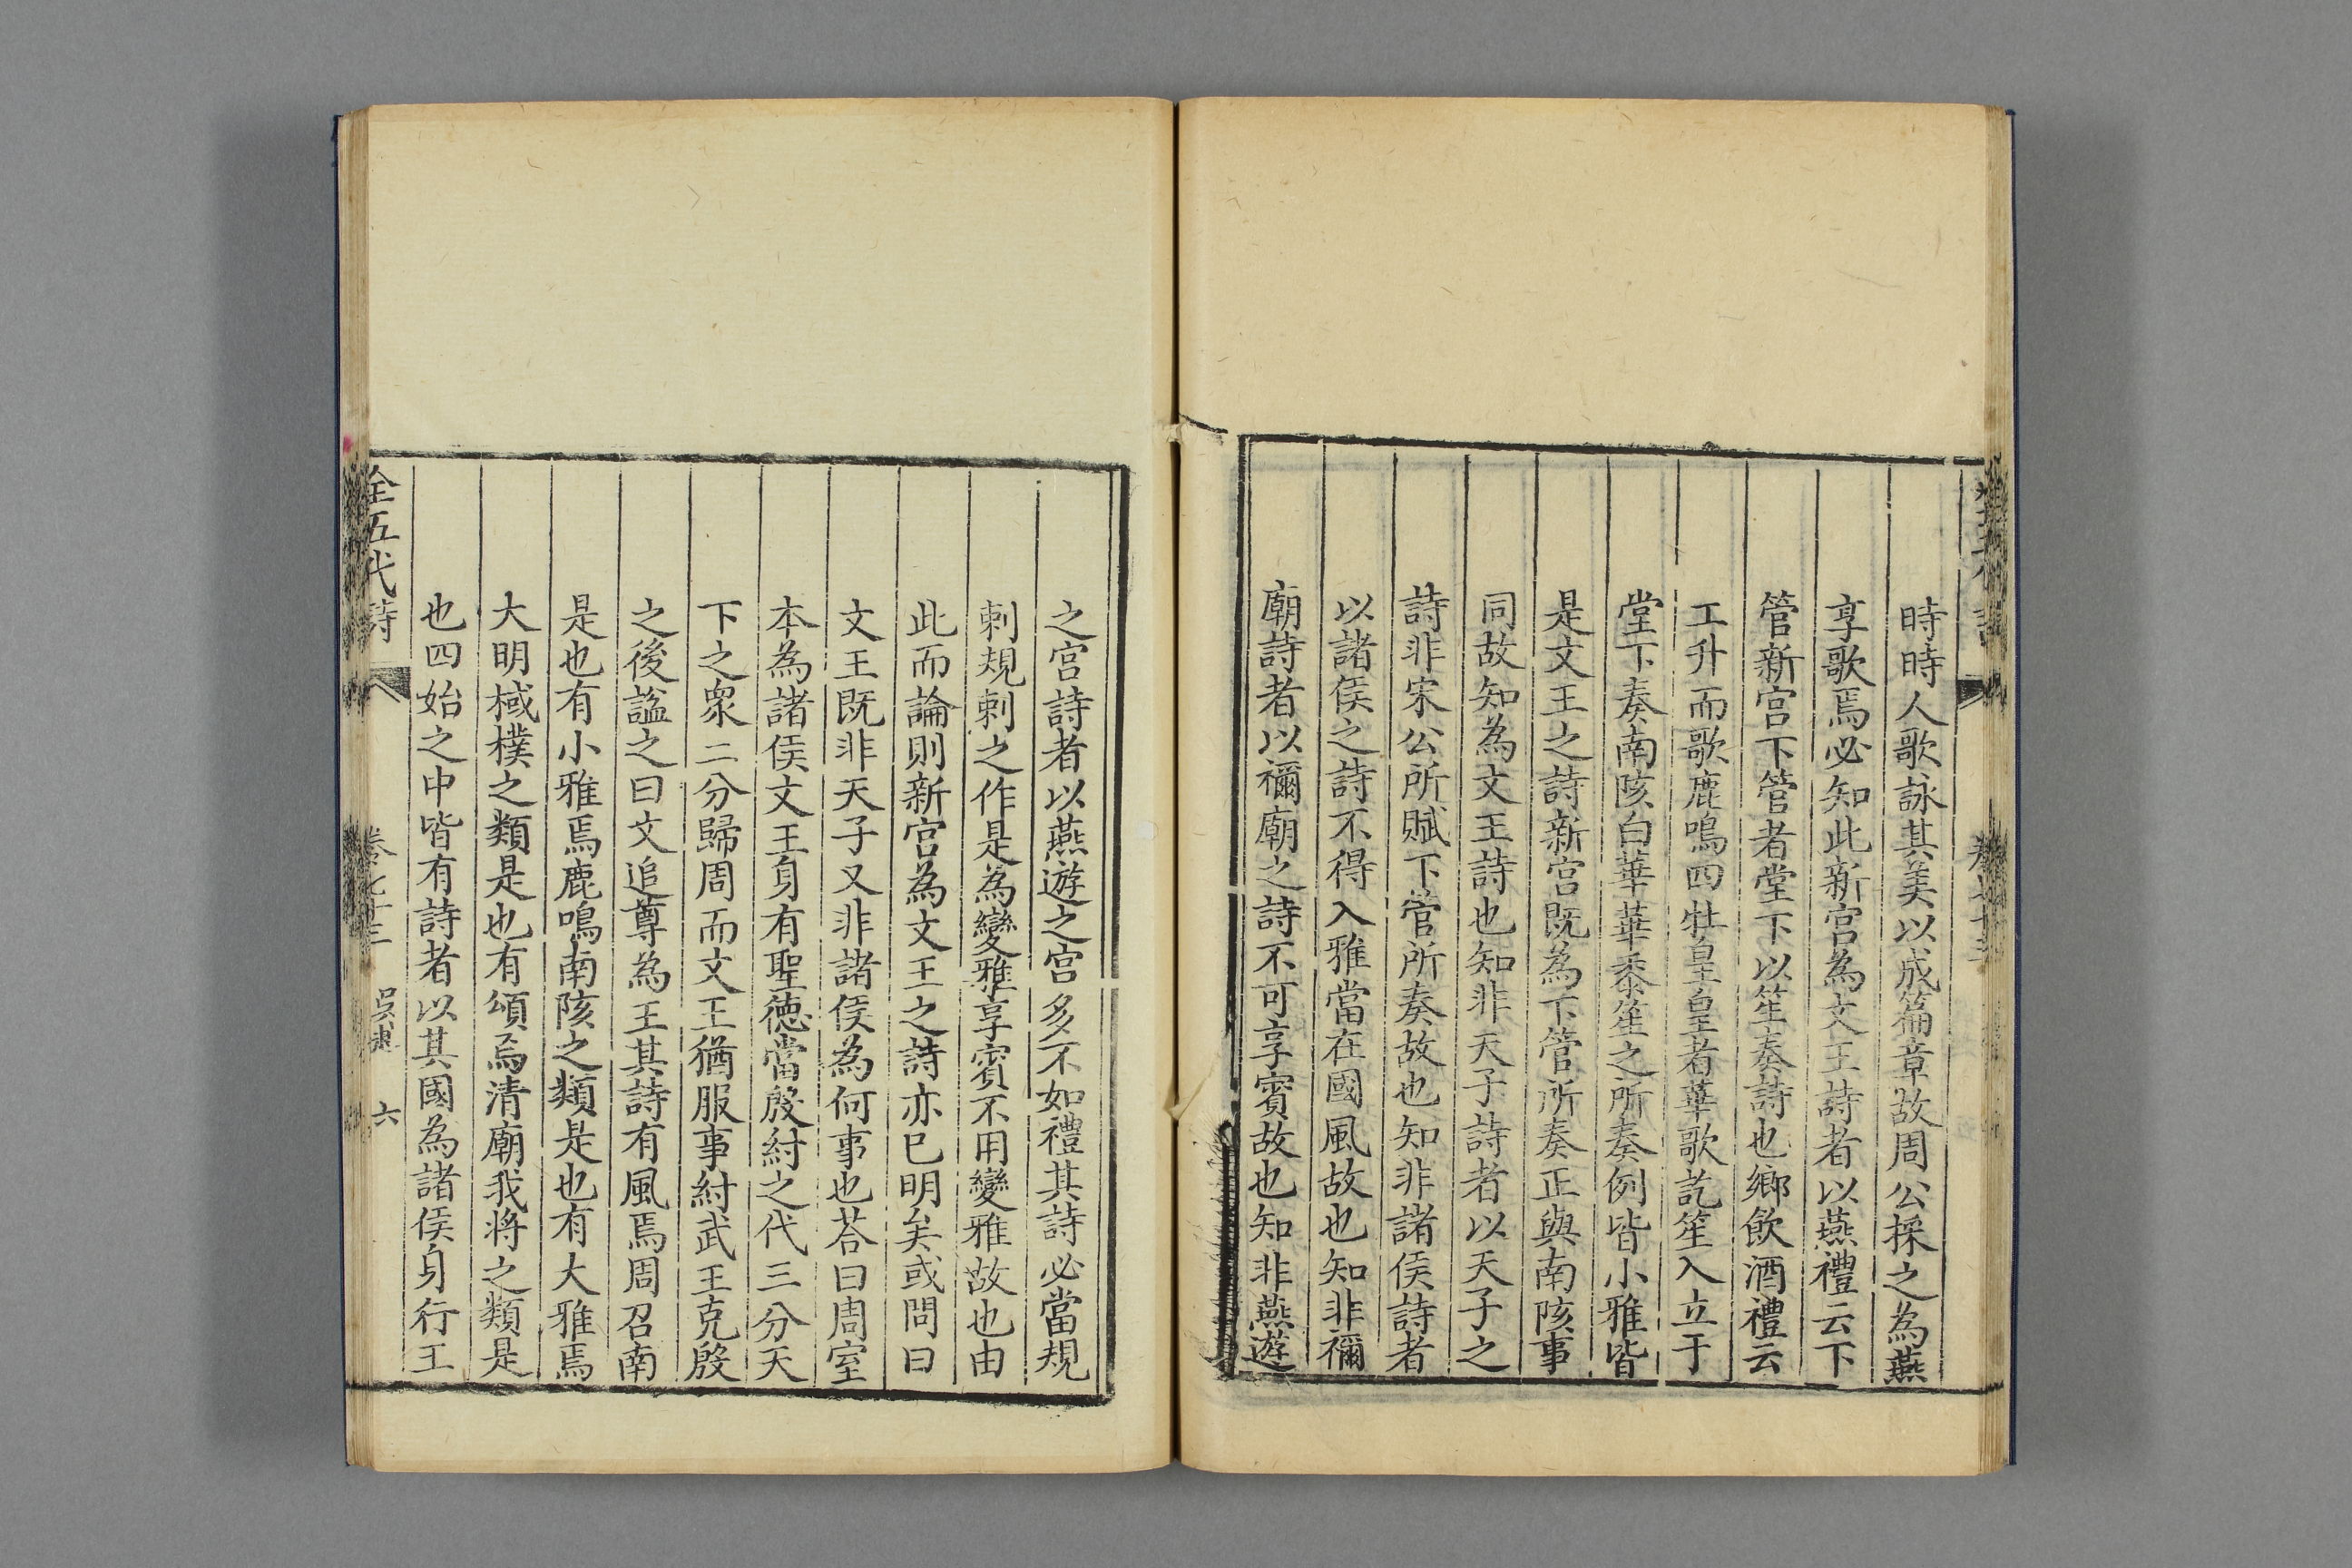 時時人歌詠其美以成篇章故周公採之為燕
享歌焉必知此新宮為文王詩者以燕禮云下
管新宮下管者堂下以笙奏詩也鄉飲酒禮云
工升而歌鹿鳴四牡皇皇者華歌訖笙入立于
堂下奏南陔白華華黍笙之所奏例皆小雅皆
是文王之詩新宮既為下管所奏正與南陔事
同故知為文王詩也知非天子詩者以天子之
詩非宋公所賦下管所奏故也知非諸侯詩者
以諸侯之詩不得入雅當在國風故也知非禰
廟詩者以禰廟之詩不可享賓故也知非燕遊
之宮詩者以燕遊之宮多不如禮其詩必當規
刺規刺之作是為變雅享賓不用變雅故也由
此而論則新宮為文王之詩亦已明矣或問曰
文王既非天子又非諸侯為何事也荅曰周室
本為諸侯文王身有聖德當殷紂之代三分天
下之眾二分歸周而文王猶服事紂武王克殷
之後謚之曰文追尊為王其詩有風焉周召南
是也有小雅焉鹿鳴南陔之類是也有大雅焉
大明棫樸之類是也有頌焉清廟我將之類是
也四始之中皆有詩者以其國為諸侯身行王
全五代詩 卷七十三 六